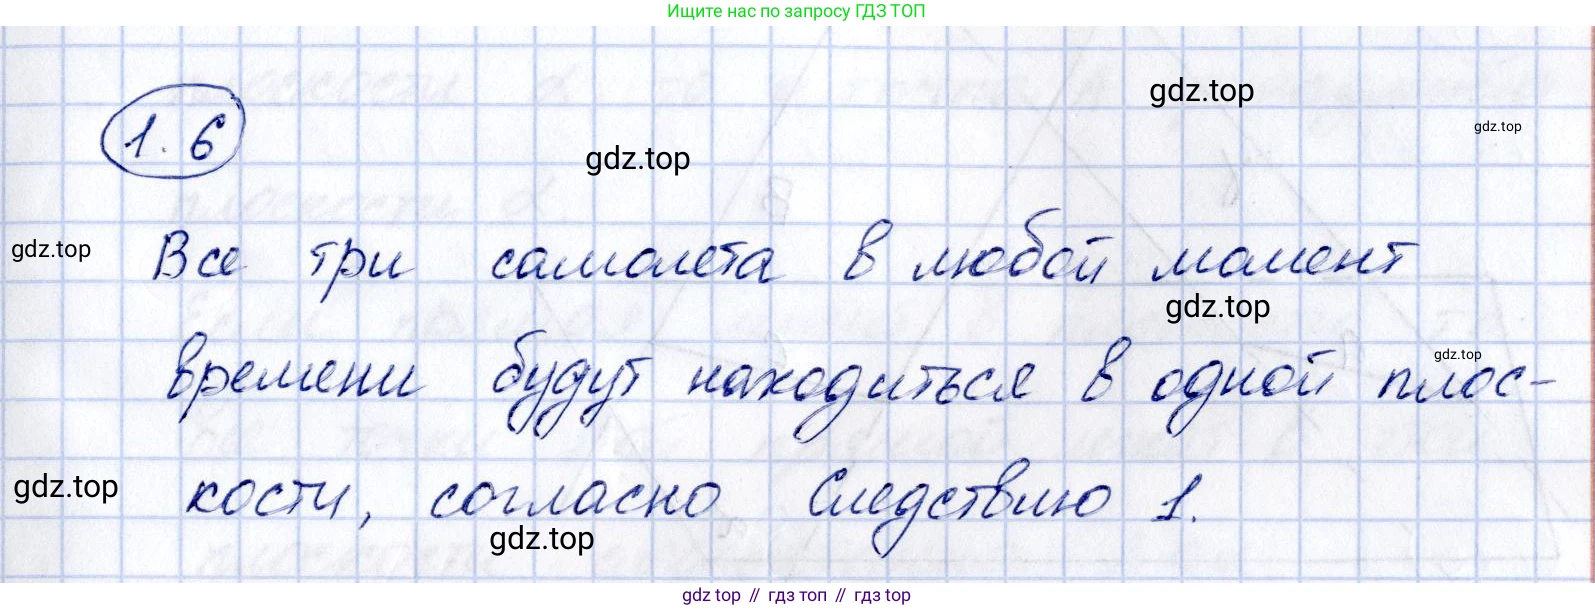 Ищите нас по запросу ГДЗ ТОП
gdz.top
gdz.top
1.6
gdz.top
gdz.top
Все три самолета в любой момент
gdz.top
времени будут находиться в одной плос-
gdz.top
gdz.top
кости, согласно Следствию 1.
gdz.top
gdz top // гдз топ // гдз top